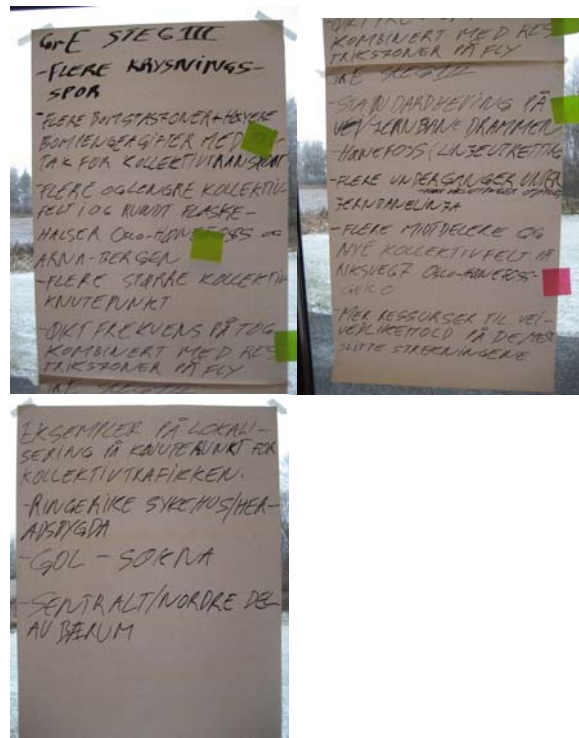 GrE STEG III
-FLERE KRYSNINGS-
SPOR
-FLERE BOMSTASJONER+HØYERE
BOMPENGEAVGIFTER MED
TAK FOR KOLLEKTIVTRANSPORT
-FLERE OG LENGRE KOLLEKTIV-
FELT I OG RUNDT FLASKE-
HALSER OSLO-HØNEFOSS OG
ARNA-BERGEN
-FLERE STØRRE KOLLEKTIV
KNUTEPUNKT
-ØKT FREKVENS PÅ TOG
KOMBINERT MED RES
TRIKSZONER PÅ FLY
KOMBINERT MED RES
TRIKSZONER PÅ FLY
GRE STEG III
-STANDARDHEVING PÅ
JERNBANE DRAMMEN
-HØNEFOSS (LINJEUTRETTING
-FLERE UNDERGANGER UNDER
JERNBANELINJA
-FLERE MIDTDELERE OG
NYE KOLLEKTIVFELT PÅ
RIKSVEG 7 OSLO-HØNEFOSS-
GEILO
-MER RESSURSER TIL VEI-
VEDLIKEHOLD PÅ DE MEST
SLITTE STREKNINGENE
EKSEMPLER PÅ LOKALI-
SERING PÅ KNUTEPUNKT FOR
KOLLEKTIVTRAFIKKEN.
-RINGERIKE SYKEHUS/HER-
ADSBYGDA
-GOL - SOKNA
-SENTRALT/NORDRE DEL
AV BÆRUM